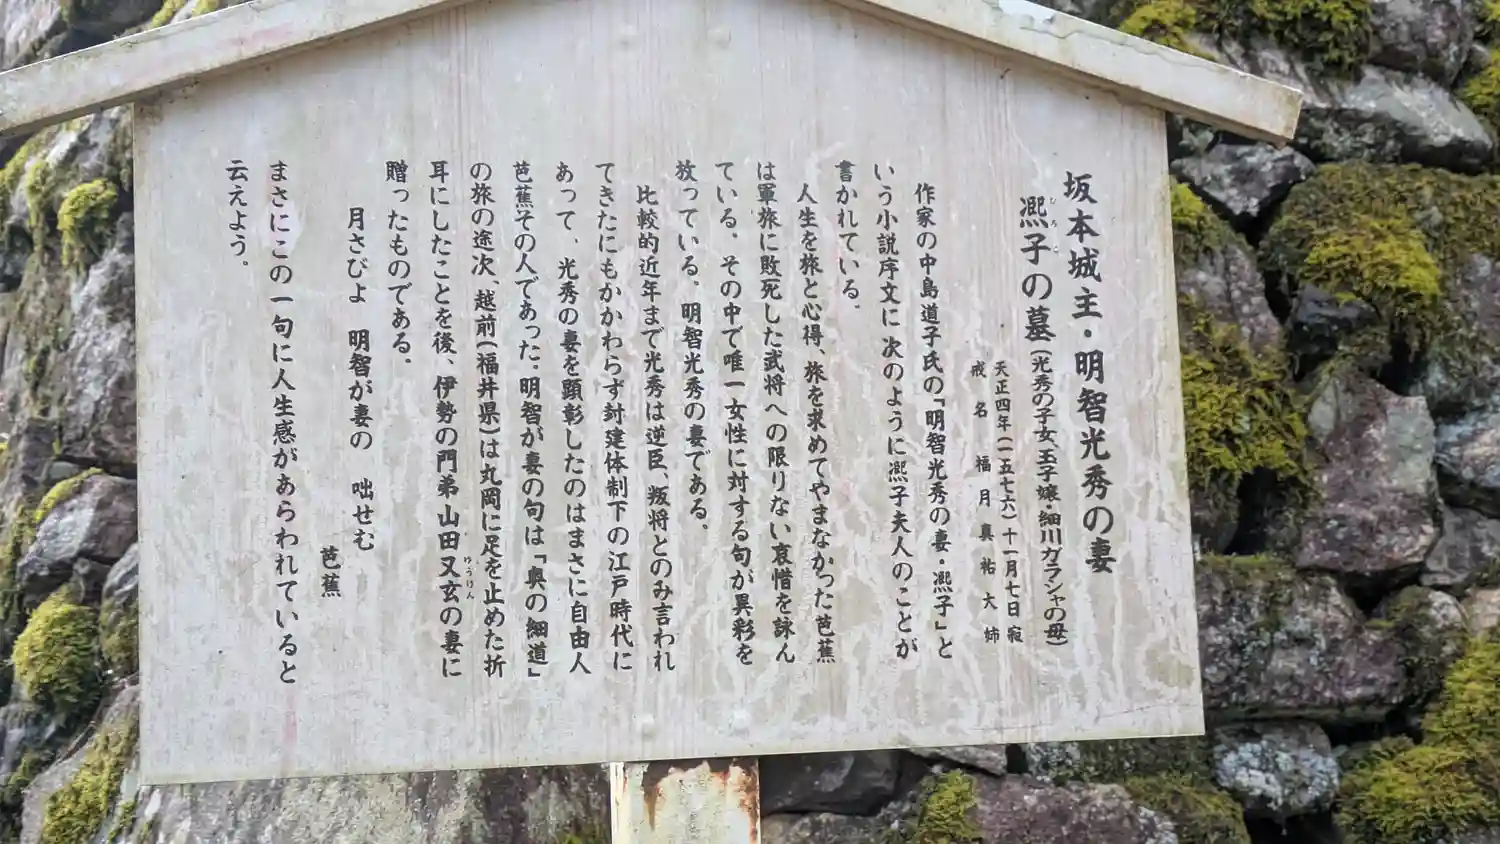 坂本城主・明智光秀の妻
熈子の墓(光秀の子女、玉子嬢・細川ガラシャの母)
ひろこ
天正四年(一五七六)十一月七日寂
戒名 福月真祐大姉
作家の中島道子氏の「明智光秀の妻・熈子」と
いう小説序文に次のように熈子夫人のことが
書かれている。
人生を旅と心得、旅を求めてやまなかった芭蕉
は軍旅に敗死した武将への限りない哀惜を詠ん
ている。その中で唯一女性に対する句が異彩を
放っている。明智光秀の妻である。
比較的近年まで光秀は逆臣、叛将とのみ言われ
てきたにもかかわらず封建体制下の江戸時代に
あって、光秀の妻を顕彰したのはまさに自由人
芭蕉その人であった。明智が妻の句は「奥の細道」
の旅の途次、越前(福井県)は丸岡に足を止めた折
耳にしたことを後、伊勢の門弟山田又玄の妻に
ゆうげん
贈ったものである。
月さびよ 明智が妻の 咄せむ
芭蕉
まさにこの一句に人生感があらわれていると
云えよう。